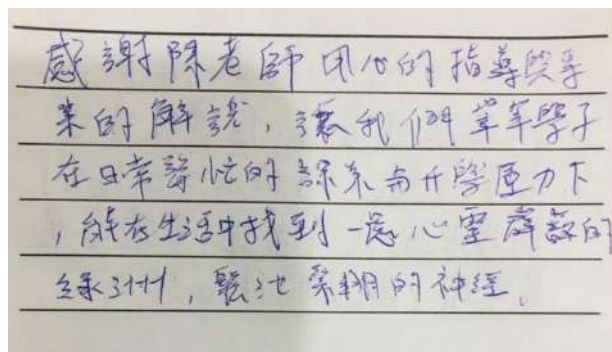 感謝陳老師用心的指導與專
業的解說，讓我們莘莘學子
在日常繁忙的課業與升學壓力下
，能在生活中找到一處心靈靜謐的
綠洲，鬆弛緊繃的神經。